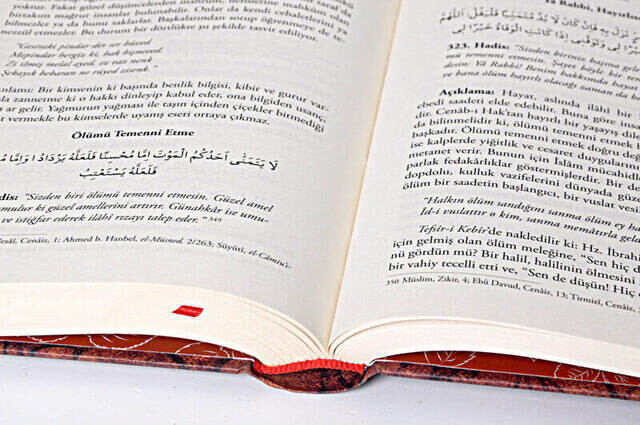 Fakat güzel sözlerden
birtakım mağrur insanlar bulunabilir. Onlar da kendi cehaletlerini ya
bilmezler ya da bunu başkalarından sorup öğrenmeye de te-
nezzül etmezler. Bu durum bir dörtlükte şu şekilde tasvir ediliyor.
"Gesnaki pindar der ser büved
Mepindar hergiz ki, hak bişneved
Zi ilmeş melal ayed, ez vaz nenk
Şekayık bebaran ne rüyed zisenk."
anlamı: Bir kimsenin ki başında benlik bilgisi, kibir ve gurur var-
zannetme ki o hakkı dinleyip kabul eder, ona bilgiden usanç,
ar gelir. Yağmurun yağması ile taşın içinden çiçekler bitmediği
vermekle bu kimselerde uyanış eseri ortaya çıkmaz.
Ölümü Temenni Etme
لَا يَتَمَنَّى أَحَدُكُمُ الْمَوْتَ إِمَّا مُحْسِنًا فَلَعَلَّهُ يَزْدَادُ وَإِمَّا
فَلَعَلَّهُ يَسْتَعْتِبُ
"Sizden biri ölümü temenni etmesin. Güzel amel
umulur ki güzel amellerini artırır. Günahkâr ise umu-
ve istiğfar ederek ilâhî rızayı talep eder." 349
Cenâiz, 1; Ahmed b. Hanbel, el-Müsned, 2/263; Süyûtî, el-Câmiu'.
Yâ Rabbi, Hayatta
323. Hadis: "Sizden biriniz başına
temenni etmesin. Şayet böyle bir te
desin: Yâ Rabbi! Benim hakkımda hayır
ve bana ölüm hayırlı olacağı zaman da
Açıklama: Hayat, aslında ilâhî bir
ebedî saadeti elde edebilir. Buna göre insa
dır. Cenâb-ı Hak'tan hayırlı bir yaşayış dile
da bilinmelidir ki, ölümü temenni etmek
başkadır. Ölümü temenni etmek doğru de
ise kalplerde yiğitlik ve cesaret duyguların
metanet verir. Bunun için İslâm mücahid
parlak fedakârlıklar göstermişlerdir. Bir de
dopdolu, kulluk vazifelerini dünyada güze
ölüm bir saadetin başlangıcı, bir vuslat vesi
"Halkın ölüm sandığını sanma ölüm ey h
Îd-i vuslattır o kim, sanma memâtırla gel
Tefsîr-i Kebîr'de nakledilir ki: Hz. İbrahi
için gelmiş olan ölüm meleğine, "Sen hiç d
nü gördün mü? Bir halil, halilinin ölmesini
bir vahiy tecelli etti ve, "Sen de düşün! Hiç
350 Müslim, Zikir, 4; Ebû Davud, Cenâiz, 13; Tirmizî, Cenâiz, 3